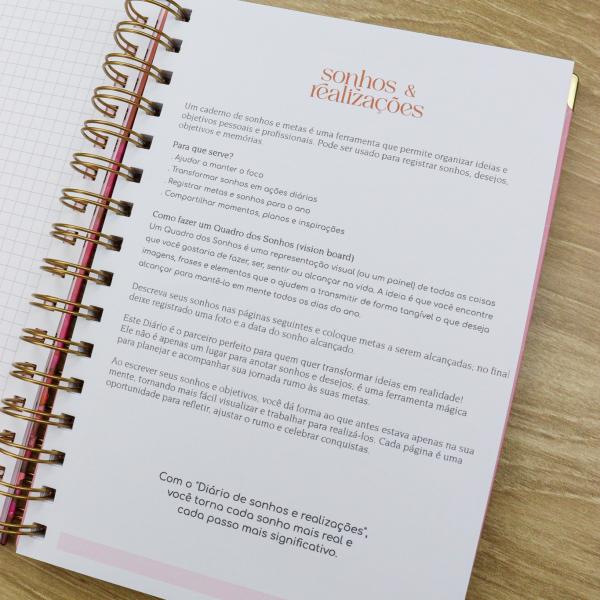 sonhos &
realizações
Um caderno de sonhos e metas é uma ferramenta que permite organizar ideias e
objetivos pessoais e profissionais. Pode ser usado para registrar sonhos, desejos,
objetivos e memórias.
Para que serve?
. Ajudar a manter o foco
. Transformar sonhos em ações diárias
. Registrar metas e sonhos para o ano
. Compartilhar momentos, planos e inspirações
Como fazer um Quadro dos Sonhos (vision board)
Um Quadro dos Sonhos é uma representação visual (ou um painel) de todas as coisas
que você gostaria de fazer, ser, sentir ou alcançar na vida. A ideia é que você encontre
imagens, frases e elementos que o ajudem a transmitir de forma tangível o que deseja
alcançar para mantê-lo em mente todos os dias do ano.
Descreva seus sonhos nas páginas seguintes e coloque metas a serem alcançadas; no final
deixe registrado uma foto e a data do sonho alcançado.
Este Diário é o parceiro perfeito para quem quer transformar ideias em realidade!
Ele não é apenas um lugar para anotar sonhos e desejos, é uma ferramenta mágica
para planejar e acompanhar sua jornada rumo às suas metas.
Ao escrever seus sonhos e objetivos, você dá forma ao que antes estava apenas na sua
mente, tornando mais fácil visualizar e trabalhar para realizá-los. Cada página é uma
oportunidade para refletir, ajustar o rumo e celebrar conquistas.
Com o "Diário de sonhos e realizações",
você torna cada sonho mais real e
cada passo mais significativo.